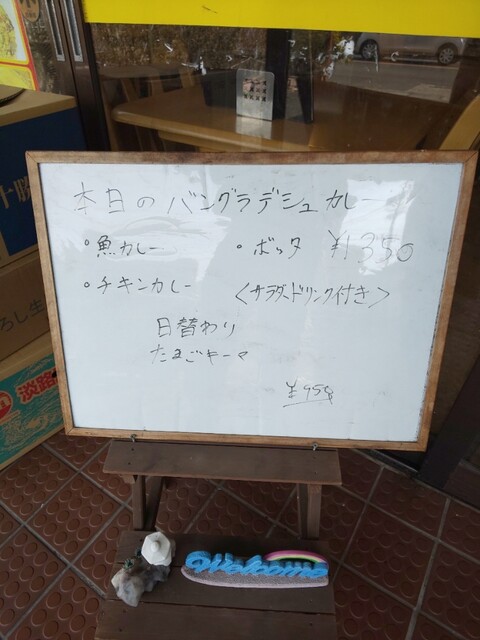 本日のバングラデシュカレー
・魚カレー ・ボッタ ¥1350
・チキンカレー <サラダ、ドリンク付き>
日替わり
たまごキーマ
¥950
Welcome
十勝
ろし生
淡路